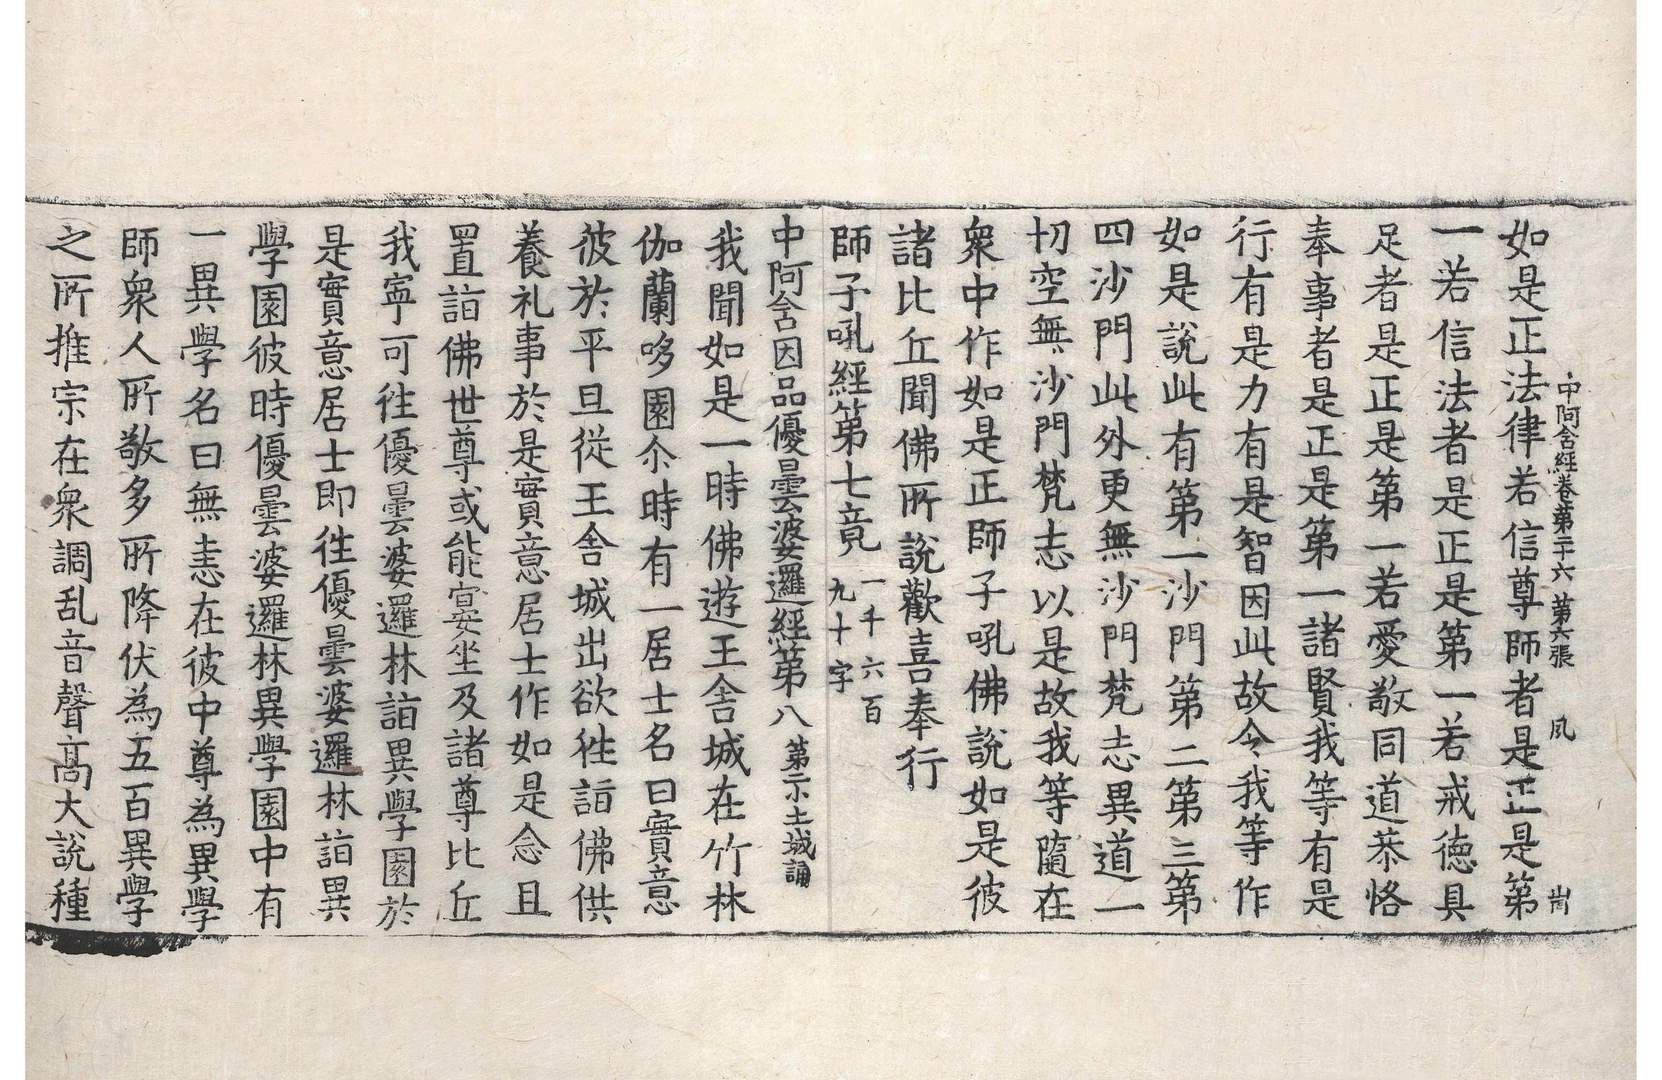 中阿含經卷第二十六 第六張 夙
如是正法律若信尊師者是正是第
一若信法者是正是第一若戒徳具
足者是正是第一若愛敬同道恭恪
奉事者是正是第一諸賢我等有是
行有是力有是智因此故令我等作
如是說此有第一沙門第二第三第
四沙門此外更無沙門梵志異道一
切空無沙門梵志以是故我等隨在
衆中作如是正師子吼佛說如是彼
諸比丘聞佛所說歡喜奉行
師子吼經第七竟 一千六百九十字
中阿含因品優曇婆邏經第八 第二小土城誦
我聞如是一時佛遊王舍城在竹林
伽蘭哆園尒時有一居士名曰實意
彼於平旦從王舍城出欲徃詣佛供
養礼事於是實意居士作如是念且
置詣佛世尊或能宴坐及諸尊比丘
我寧可徃優曇婆邏林詣異學園於
是實意居士即徃優曇婆邏林詣異
學園彼時優曇婆邏林異學園中有
一異學名曰無恚在彼中尊為異學
師衆人所敬多所降伏為五百異學
之所推宗在衆調乱音聲髙大說種